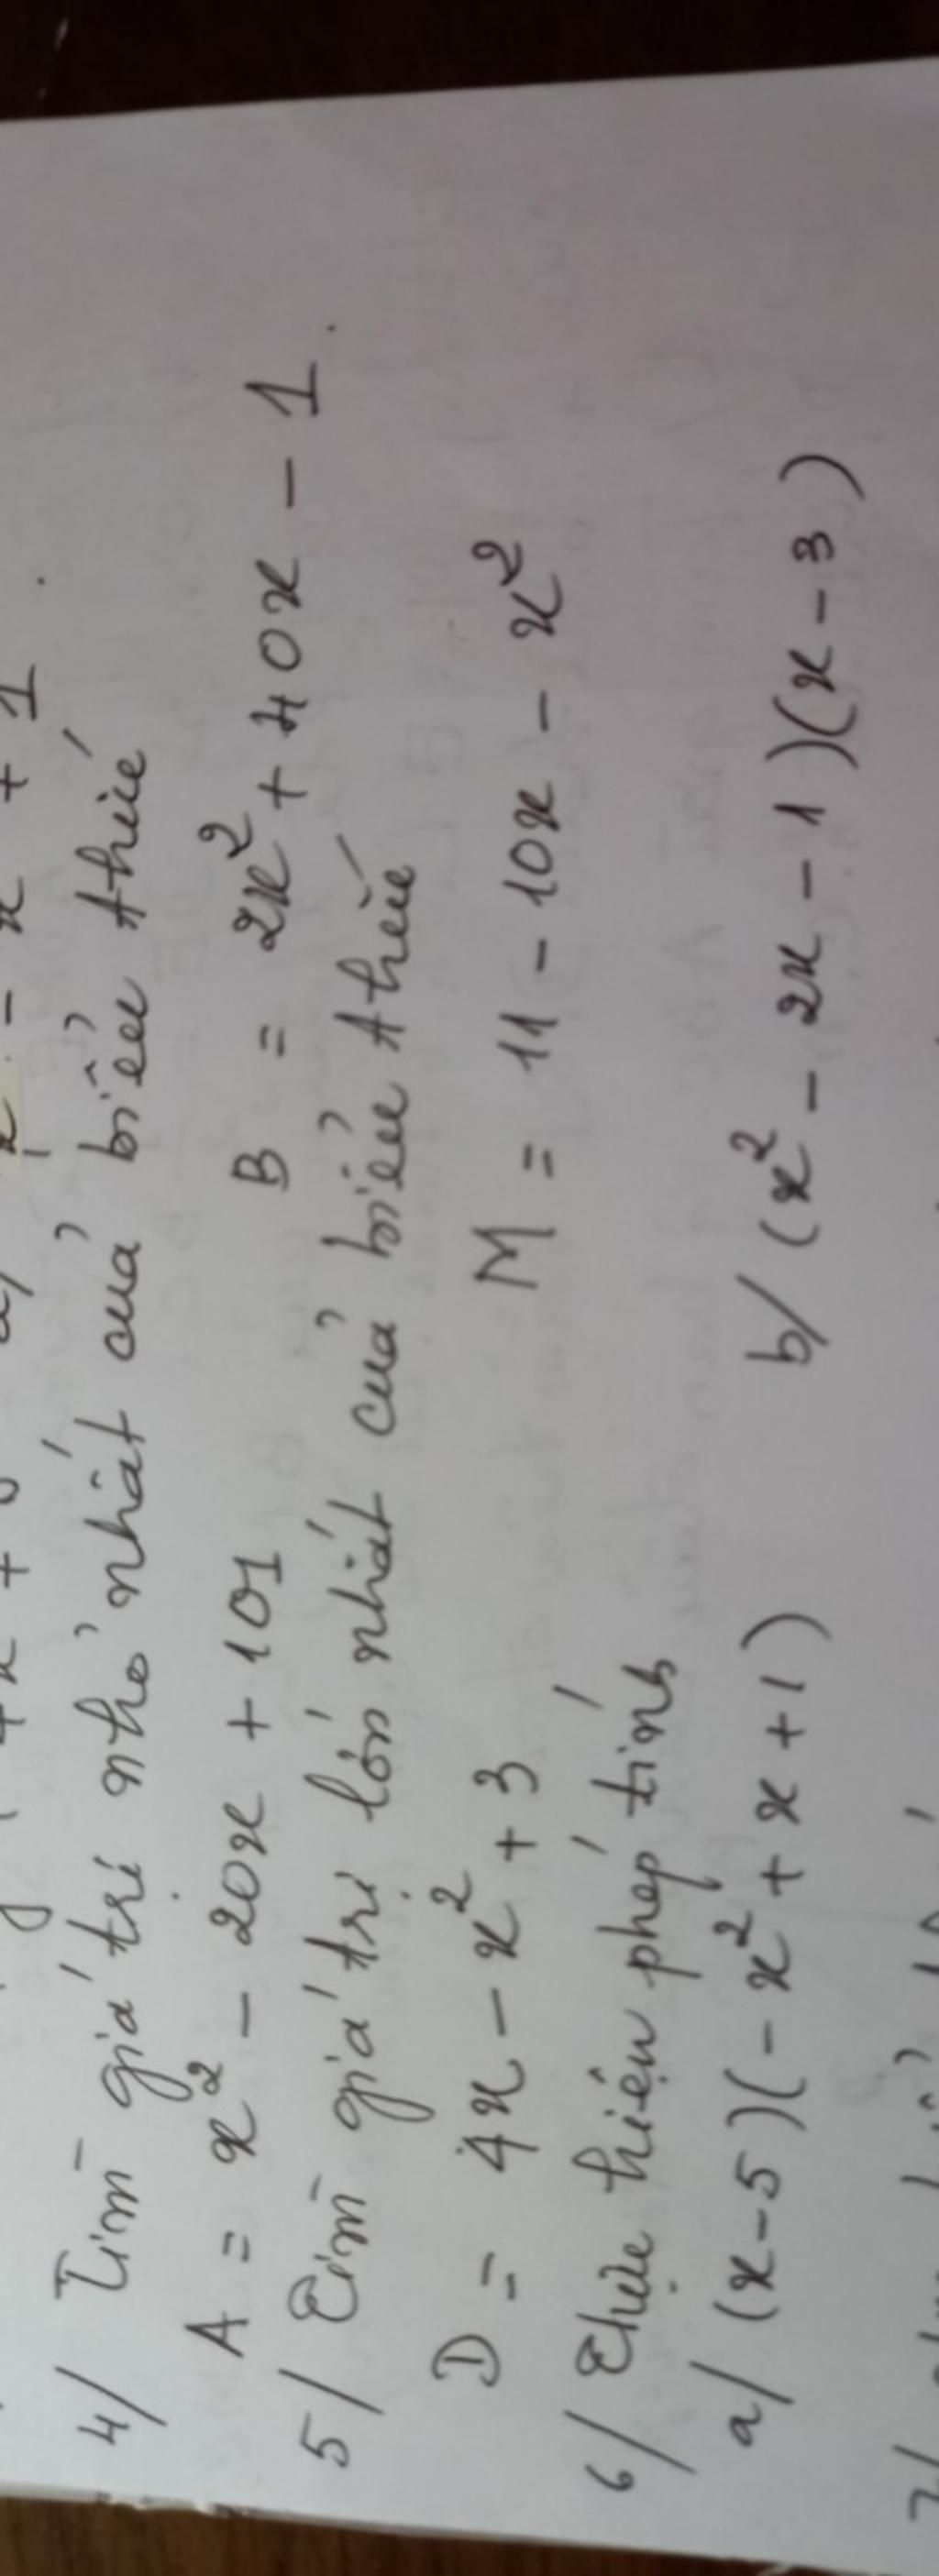 4/ Tìm giá trị nhỏ nhất của biểu thức
A = x² - 20x + 101 B = 2x² + 40x - 1.
5/ Tìm giá trị lớn nhất của biểu thức
D = 4x - x² + 3 M = 11 - 10x - x²
6/ Thực hiện phép tính
a/ (x-5)(-x²+x+1) b/ (x² - 2x - 1)(x - 3)
7/